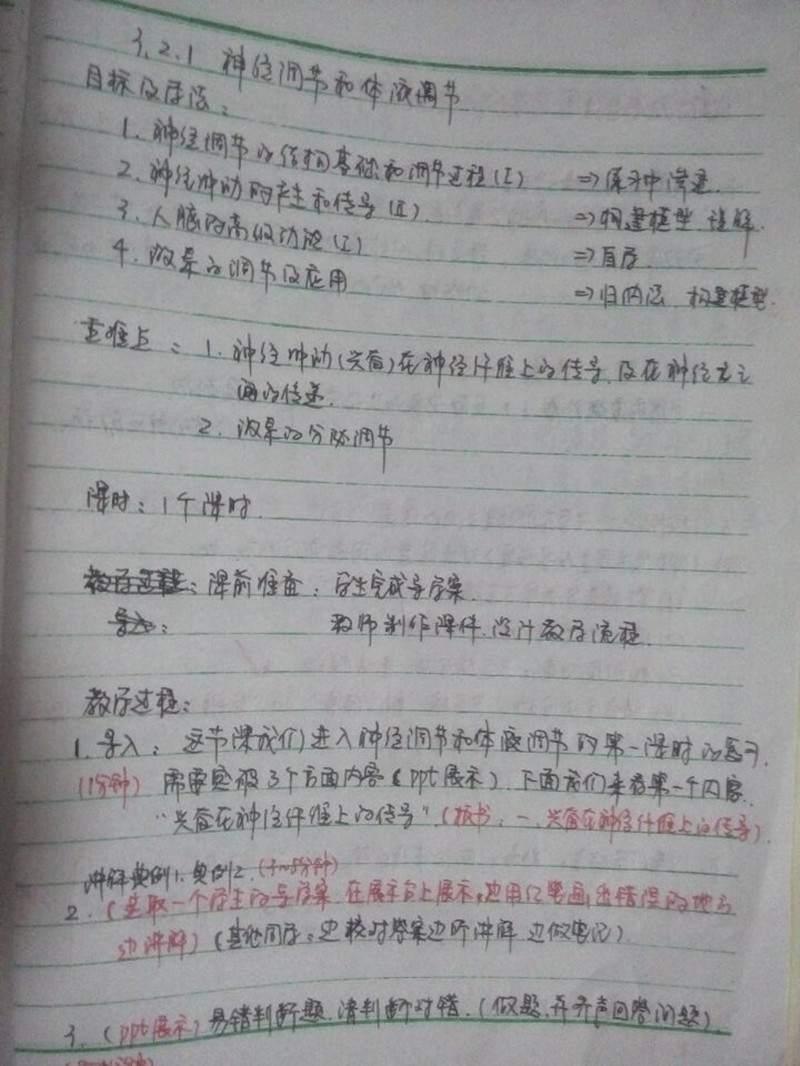 3.2.1 神经调节和体液调节
目标及学法：
1. 神经调节的结构基础和调节过程(I) ⇒复习中渗透.
2. 神经冲动的产生和传导(II). ⇒构建模型 讲解.
3. 人脑的高级功能(I) ⇒自学.
4. 激素的调节及应用 ⇒归纳法 构建模型.
重难点：1. 神经冲动(兴奋)在神经纤维上的传导、及在神经元之
间的传递.
2. 激素的分级调节
课时：1个课时.
教学过程：课前准备：学生完成导学案.
导入： 教师制作课件、设计教学流程.
教学过程：
1. 导入：这节课我们进入神经调节和体液调节的第一课时的复习.
(1分钟) 需要突破3个方面内容(ppt展示)、下面我们来看第一个内容.
“兴奋在神经纤维上的传导”(板书：一、兴奋在神经纤维上的传导).
讲解典例1、典例2.
2. (选取一个学生的导学案 在展示台上展示,边用红笔画出错误的地方
边讲解) (其他同学：边核对答案边听讲解 边做笔记).
3. (ppt展示) 易错判断题、请判断对错. (做题、并齐声回答问题)